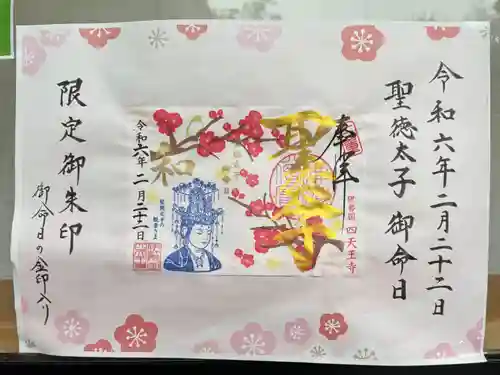 令和六年二月二十二日
聖徳太子 御命日
奉拝
聖太子
伊勢國 四天王寺
和
令和六年 二月二十二日
限定御朱印
御命日の金印入り